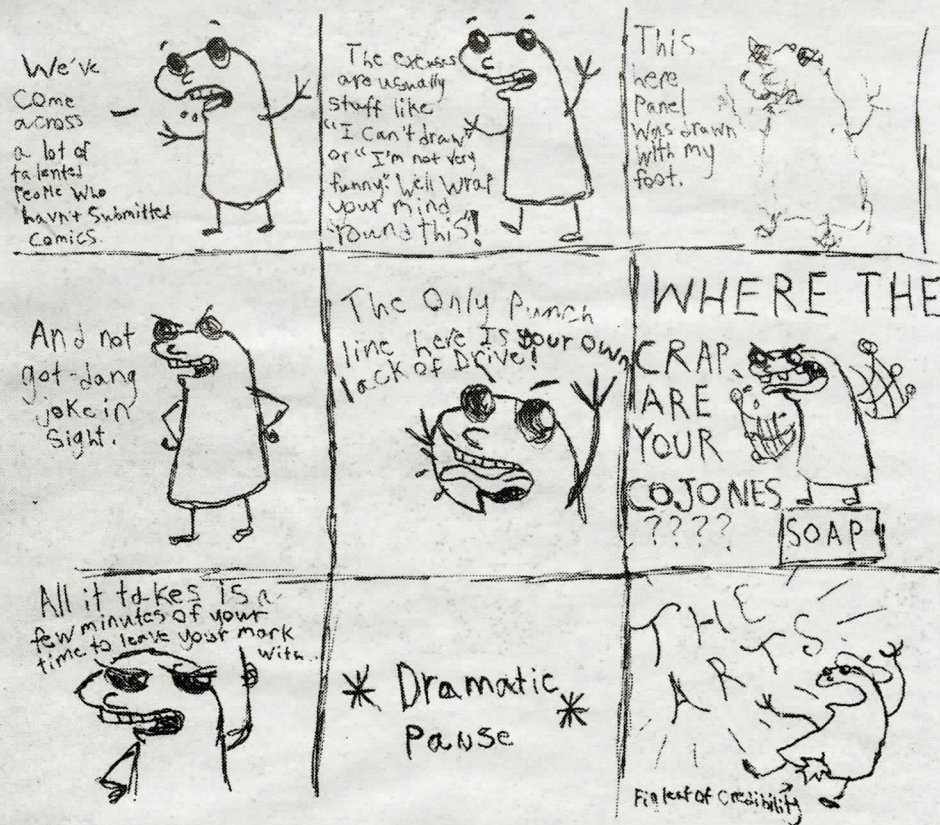 We've
come
across
a lot of
talented
People who
havn't submitted
comics.
The excuses
are usually
stuff like
"I can't draw"
or "I'm not very
funny". Well wrap
your mind
'round this!
This
here
panel
was drawn
with my
foot.
And not
got-dang
joke in
sight.
The Only Punch
line here Is your own
lack of Drive!
WHERE THE
CRAP
ARE
YOUR
COJONES
????
SOAP
All it takes Is a
few minutes of your
time to leave your mark
with...
* Dramatic
Pause *
THE
ARTS
Fig leaf of Credibility